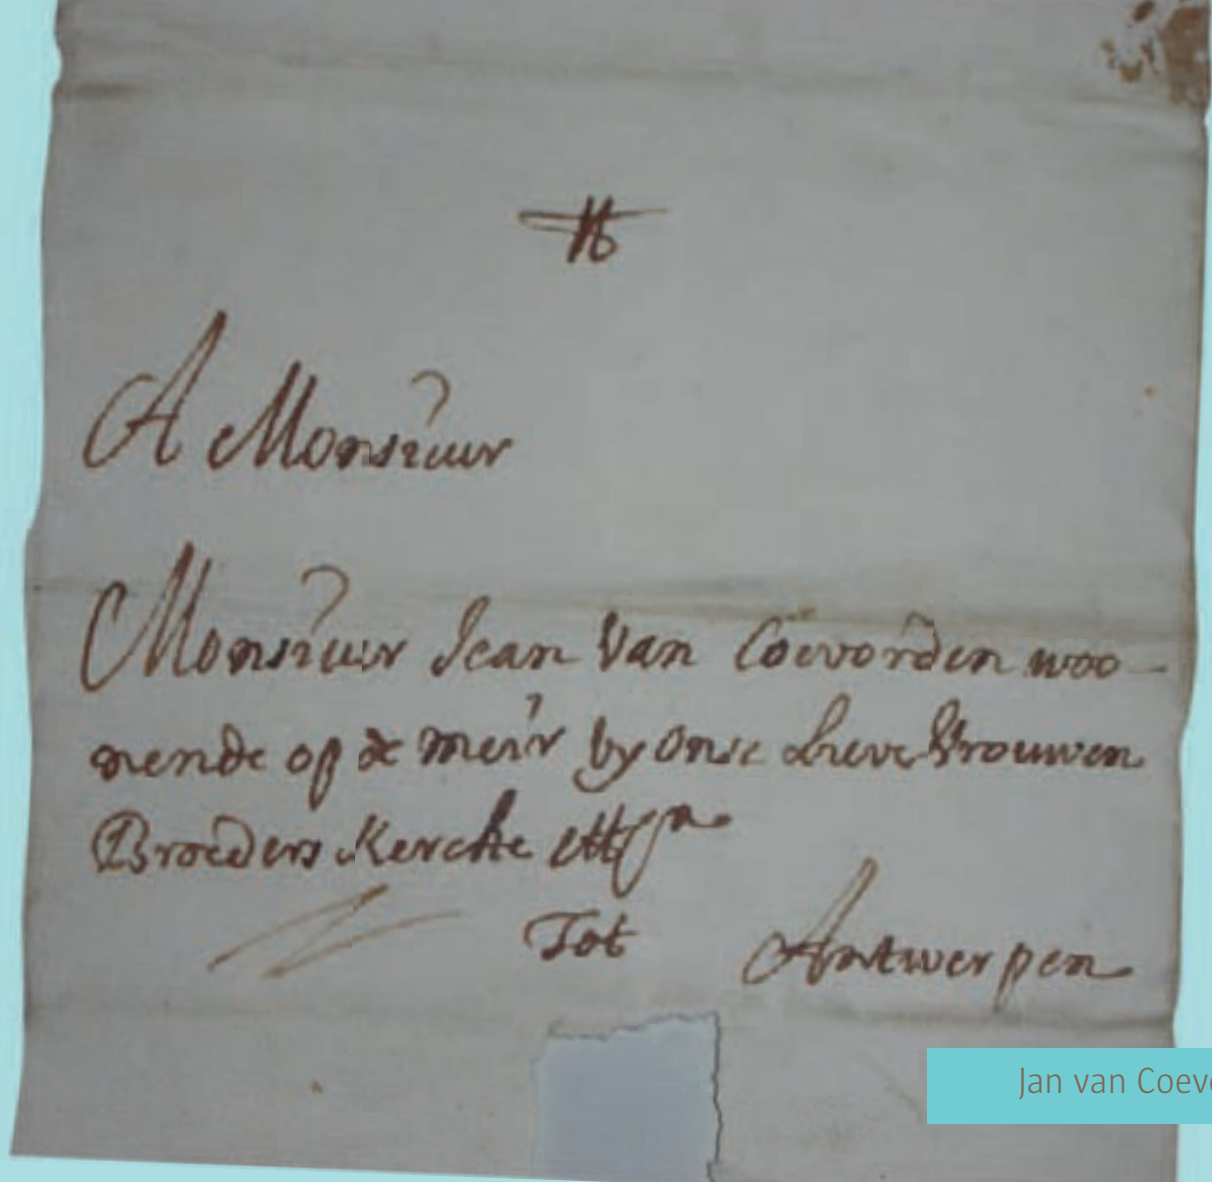 A Monsieur
Monsieur Jean Van Coevorden woo-
nende op de meir by onse Lieve Vrouwen
Broeders Kercke
Tot Antwerpen
Jan van Coev